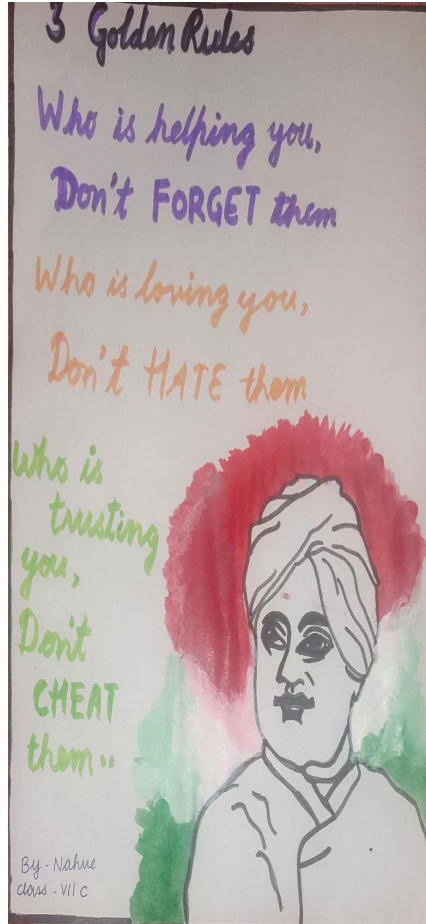 3 Golden Rules
Who is helping you,
Don't FORGET them
Who is loving you,
Don't HATE them
Who is
trusting
you,
Don't
CHEAT
them..
By - Nahue
class - VII C